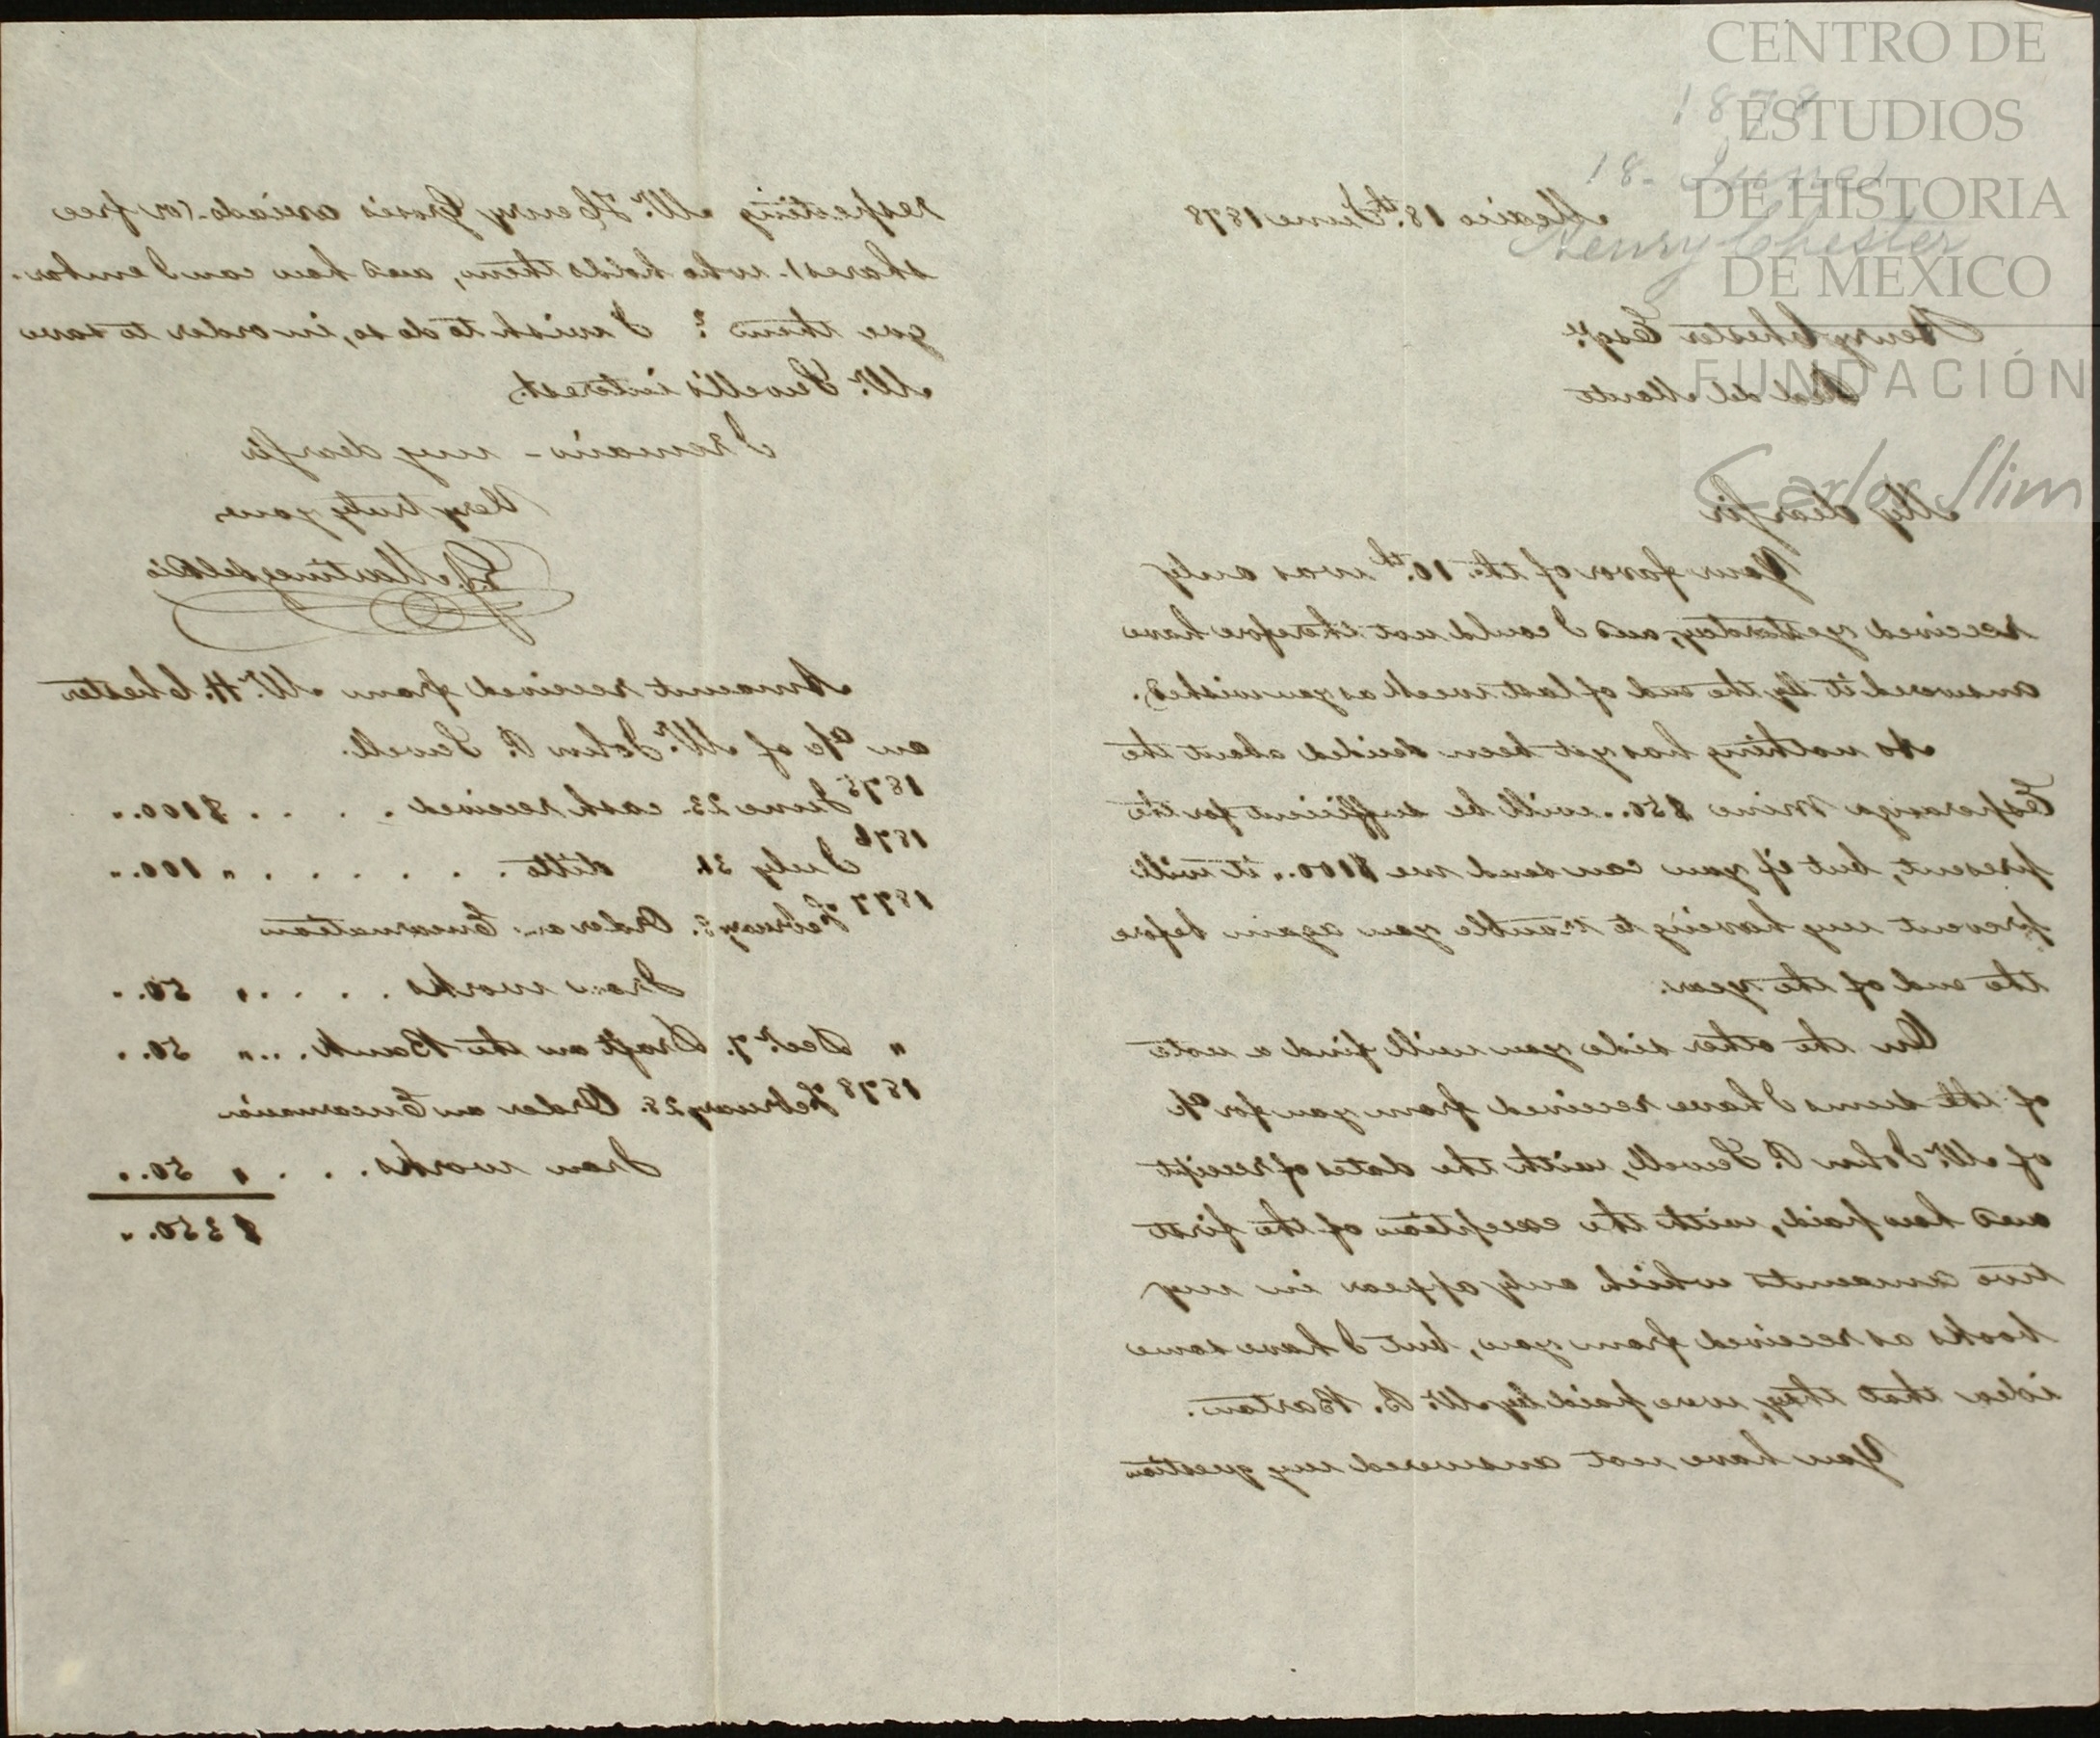 CENTRO DE
ESTUDIOS
DE HISTORIA
DE MEXICO
FUNDACIÓN
Carlos Slim
1878
18- June
Henry Chester
Mexico 18.th June 1878
Henry Chester Esqr.
Real del Monte
My dear Sir
Your favor of the 10.th was only
received yesterday, and I could not therefore have
answered it by the end of last week as you wished.
As nothing has yet been decided about the
Esperanza Mine $50.. will be sufficient for the
present, but if you can send me $100.. it will
prevent my having to trouble you again before
the end of the year.
On the other side you will find a note
of the sums I have received from you for a/c
of Mr. John R. Sewell, with the dates of receipt
and how paid, with the exception of the first
two amounts which only appear in my
books as received from you, but I have some
idea that they were paid by Mr. B. Barton.
You have not answered my question
respecting Mr. Henry Gross's aviado (or free
shares). who holds them, and how can I embar-
goe them? I wish to do so, in order to save
Mr. Sewell's interest.
I remain - my dear Sir
Very truly yours
J. Martinez del Rio
Amount received from Mr. H. Chester
on a/c of Mr. John R. Sewell.
1875 June 23. cash received . . . . $100..
1876 July 31. ditto . . . . . . " 100..
1877 February 5. Order on Encarnation
Iron works . . . . " 50..
" Decr. 7. Draft on the Bank ... " 50..
1878 February 28. Order on Encarnacion
Iron works. . . . " 50..
$350..